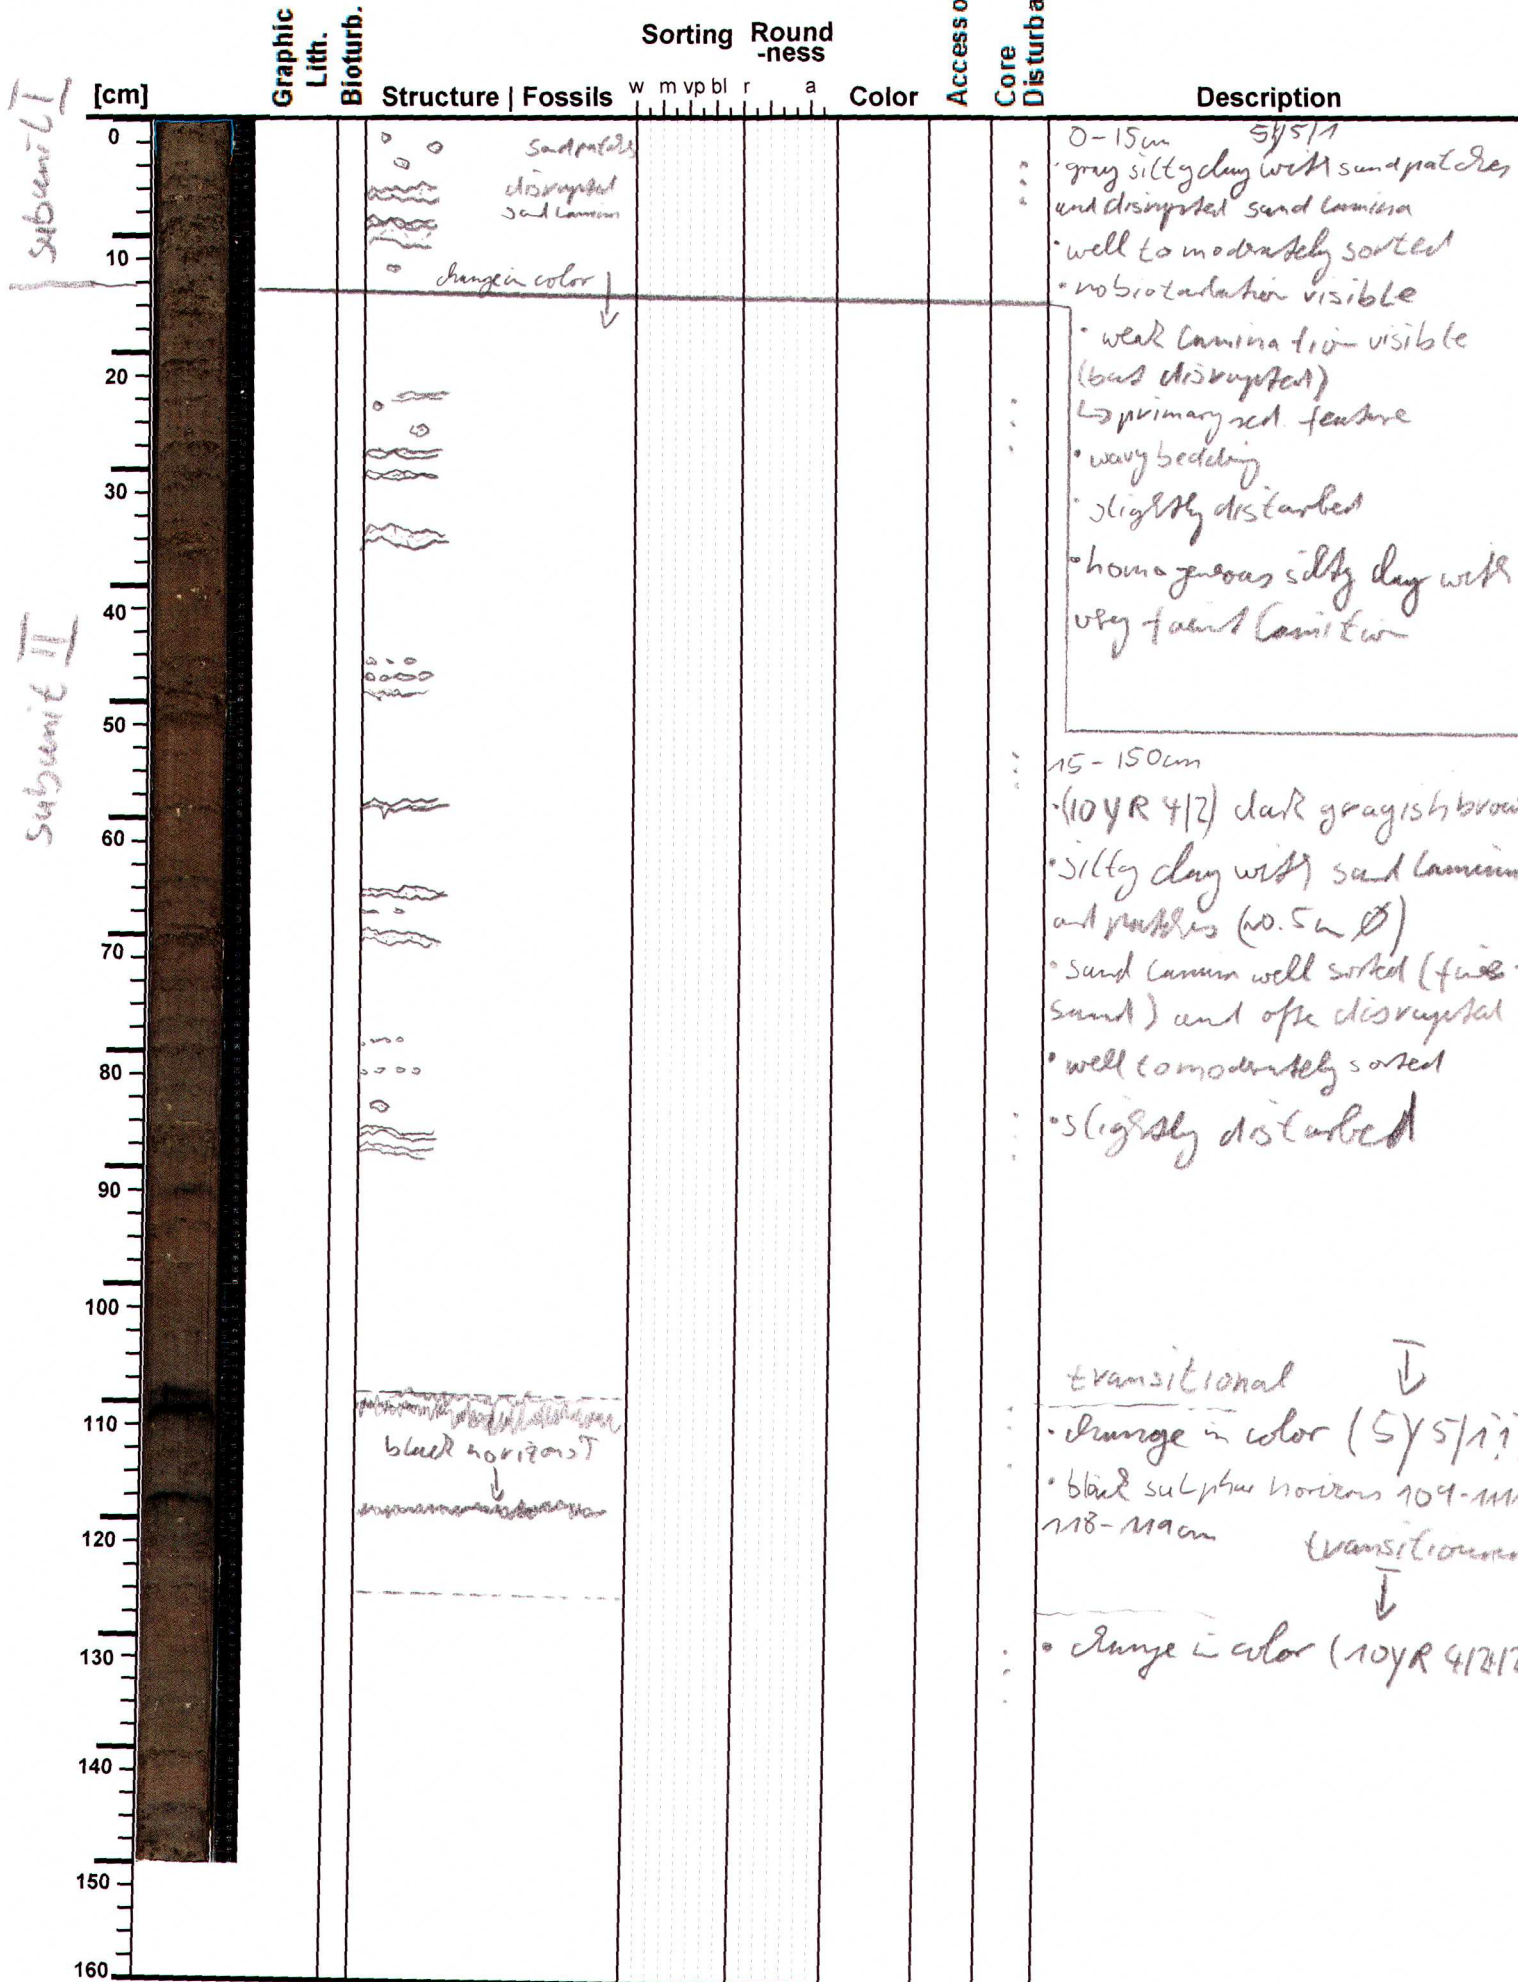 Graphic Lith.
Bioturb.
Sorting
Round
-ness
Accesso
Core
Disturba
[cm]
Structure | Fossils
w m vp bl r a
Color
Description
subunit I
subunit II
0
10
20
30
40
50
60
70
80
90
100
110
120
130
140
150
160
sandpatches
disrupted
sand lamina
change in color ↓
black horizons ↑
↓
0-15cm 5Y5/1
· gray silty clay with sandpatches
and disrupted sand lamina
· well to moderately sorted
· no bioturbation visible
· weak lamination visible
(but disrupted)
↳ primary sed. feature
· wavy bedding
· slightly disturbed
· homogeneous silty clay with
very faint
15-150cm
· (10YR 4/2) dark grayish brow
· silty clay with sand lamina
and patches (~0.5cm Ø)
· sand lamina well sorted (fine-
sand) and often disrupted
· well to moderately sorted
· slightly disturbed
transitional ↓
· change in color (5Y5/1
· black sulphur horizons 109-111
118-119cm
↓
· change in color (10YR 4/2